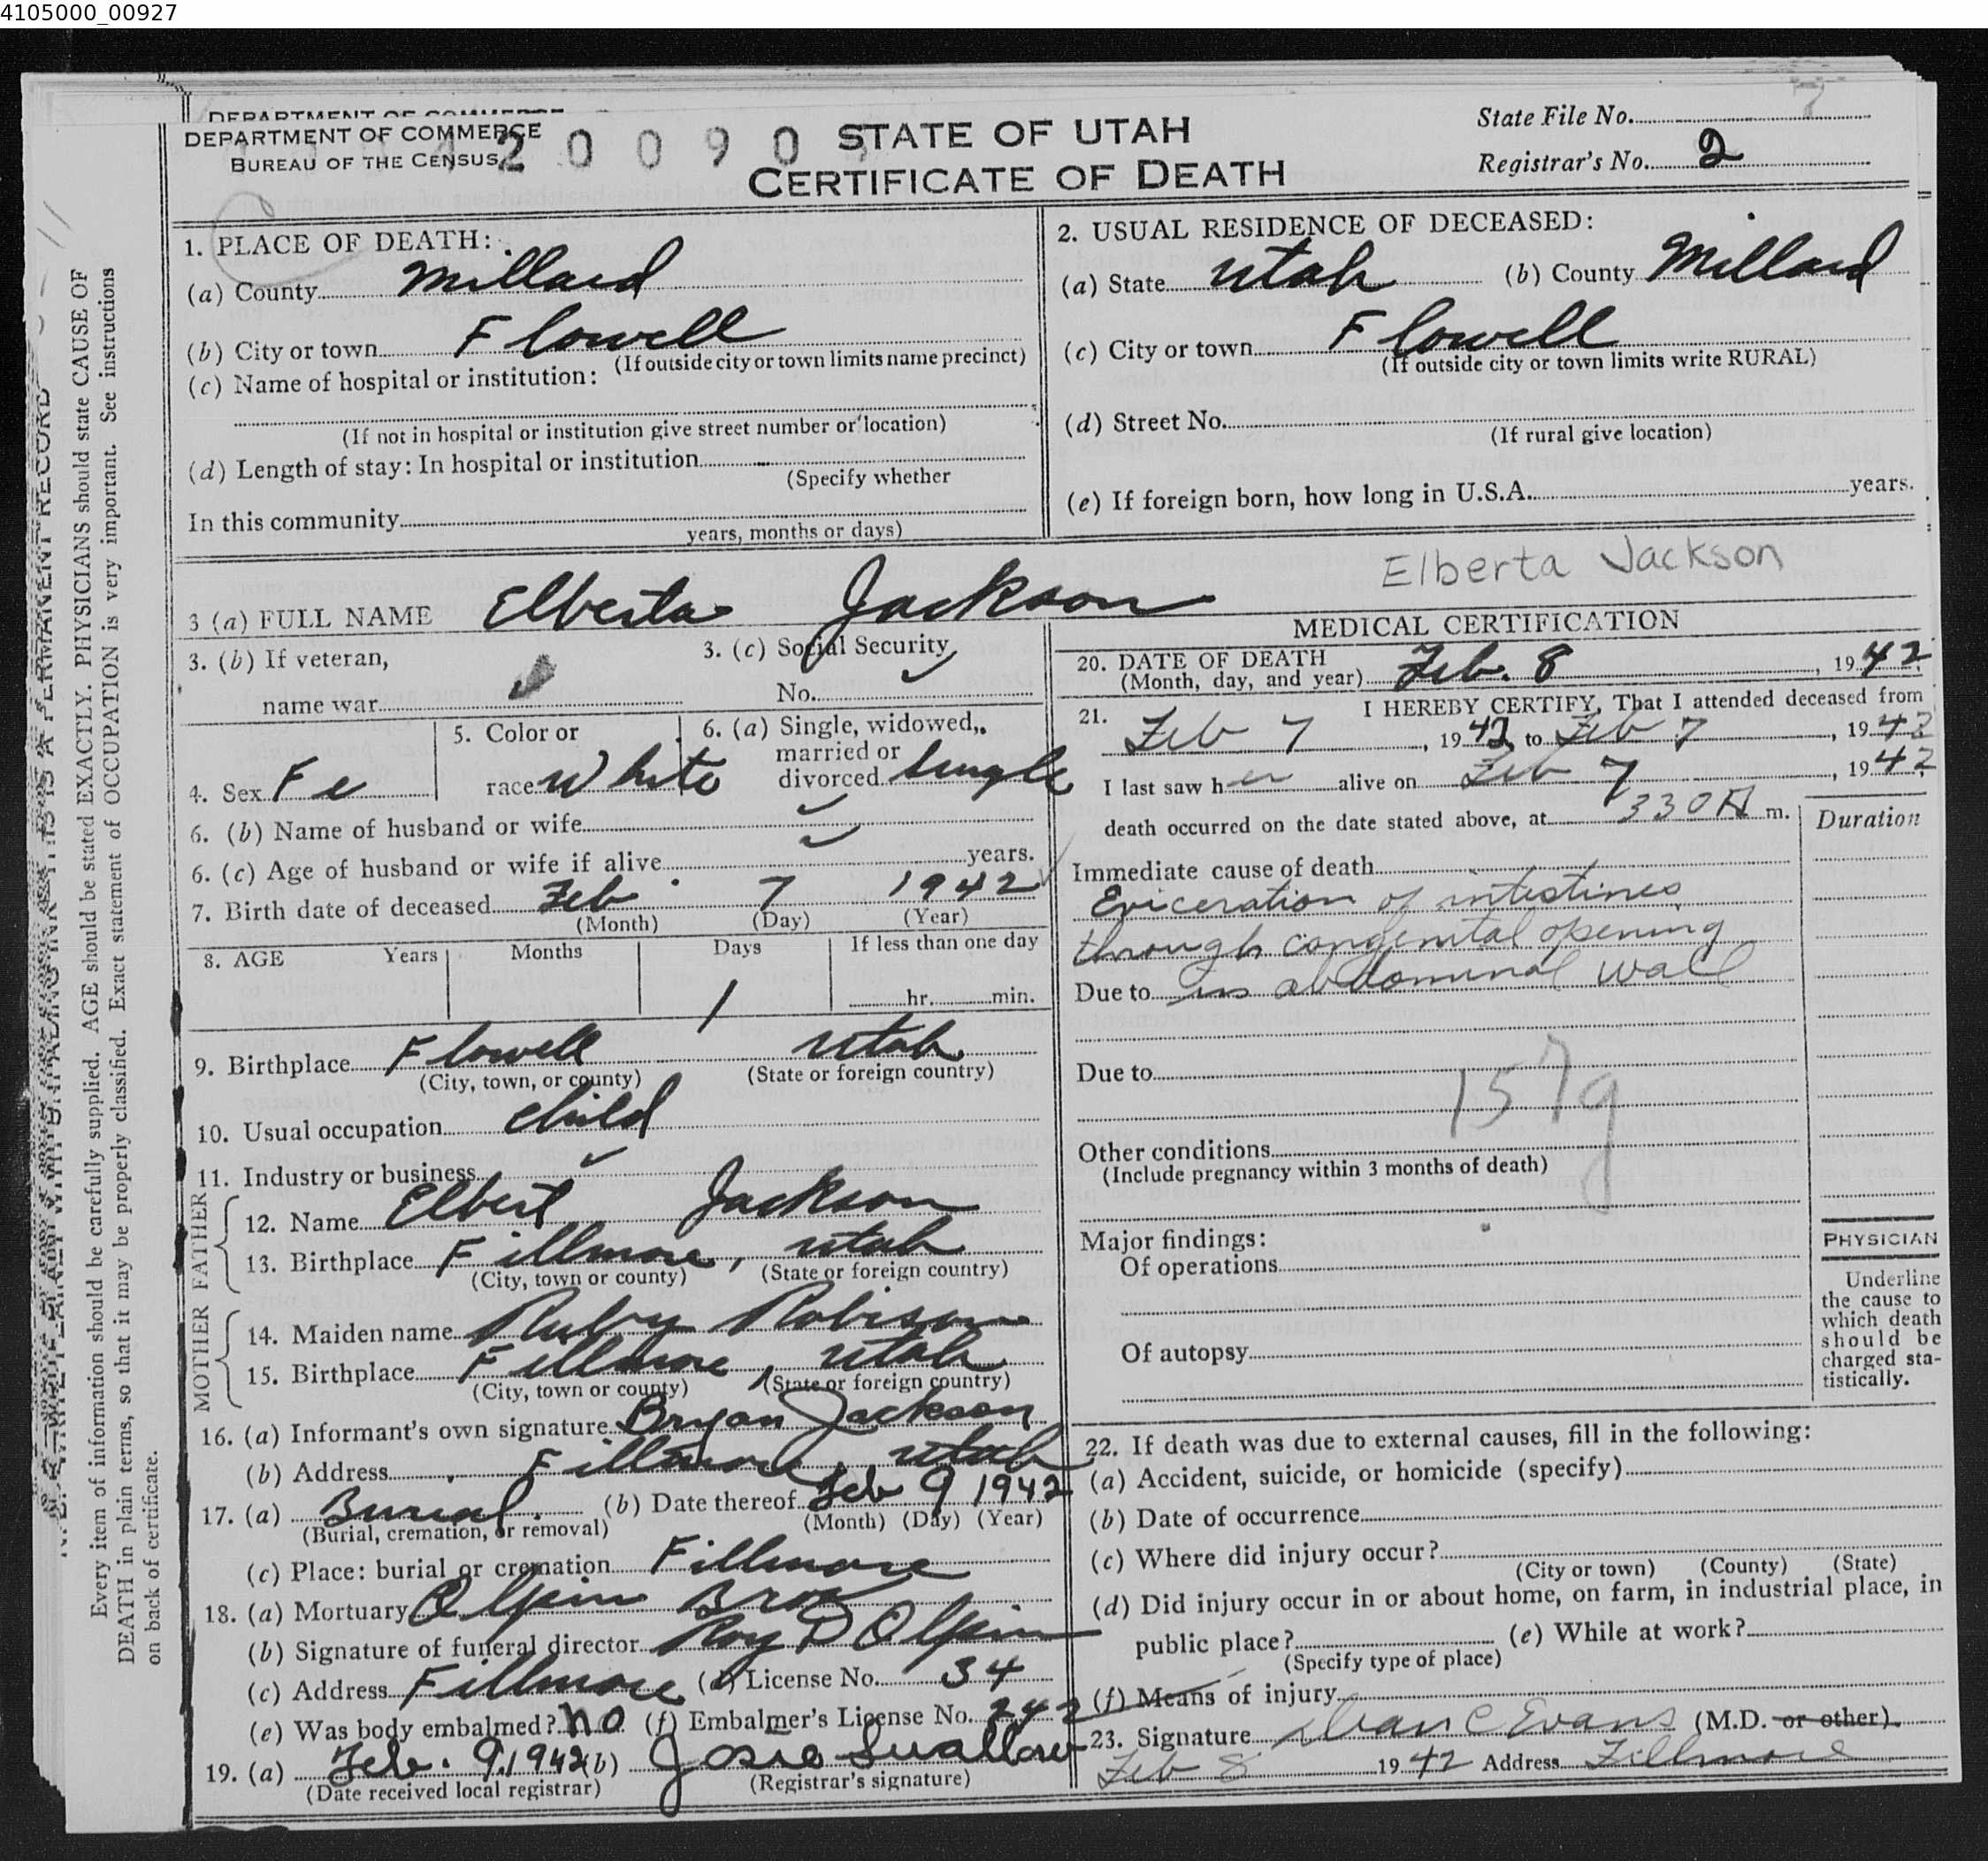 4105000_00927
7
DEPARTMENT OF COMMERCE
DEPARTMENT OF COMMERCE
BUREAU OF THE CENSUS
4 2 0 0 9 0
STATE OF UTAH
CERTIFICATE OF DEATH
State File No.
Registrar's No. 2
1. PLACE OF DEATH:
(a) County Millard
(b) City or town Flowell
(If outside city or town limits name precinct)
(c) Name of hospital or institution:
(If not in hospital or institution give street number or location)
(d) Length of stay: In hospital or institution
(Specify whether
In this community
years, months or days)
2. USUAL RESIDENCE OF DECEASED:
(a) State Utah (b) County Millard
(c) City or town Flowell
(If outside city or town limits write RURAL)
(d) Street No.
(If rural give location)
(e) If foreign born, how long in U.S.A. years.
Elberta Jackson
3 (a) FULL NAME Elberta Jackson
3. (b) If veteran,
name war
3. (c) Social Security
No.
4. Sex Fe
5. Color or
race White
6. (a) Single, widowed,
married or
divorced Single
6. (b) Name of husband or wife
6. (c) Age of husband or wife if alive years.
7. Birth date of deceased Feb 7 1942
(Month) (Day) (Year)
8. AGE Years Months Days If less than one day
1 hr. min.
9. Birthplace Flowell Utah
(City, town, or county) (State or foreign country)
10. Usual occupation Child
11. Industry or business
FATHER
12. Name Elbert Jackson
13. Birthplace Fillmore, Utah
(City, town or county) (State or foreign country)
MOTHER
14. Maiden name Ruby Robison
15. Birthplace Fillmore, Utah
(City, town or county) (State or foreign country)
16. (a) Informant's own signature Bryan Jackson
(b) Address Fillmore Utah
17. (a) Burial (b) Date thereof Feb 9 1942
(Burial, cremation, or removal) (Month) (Day) (Year)
(c) Place: burial or cremation Fillmore
18. (a) Mortuary Olpin Bros
(b) Signature of funeral director Roy P Olpin
(c) Address Fillmore (d) License No. 34
(e) Was body embalmed? no (f) Embalmer's License No. 242
19. (a) Feb. 9, 1942 (b) Josie Swallow
(Date received local registrar) (Registrar's signature)
MEDICAL CERTIFICATION
20. DATE OF DEATH
(Month, day, and year) Feb. 8, 1942
21. I HEREBY CERTIFY, That I attended deceased from
Feb 7, 1942 to Feb 7, 1942
I last saw her alive on Feb 7, 1942
death occurred on the date stated above, at 330 A m.
Duration
Immediate cause of death
Eviceration of intestines
through congenital opening
Due to in abdominal wall
Due to
157g
Other conditions
(Include pregnancy within 3 months of death)
Major findings:
Of operations
Of autopsy
PHYSICIAN
Underline
the cause to
which death
should be
charged sta-
tistically.
22. If death was due to external causes, fill in the following:
(a) Accident, suicide, or homicide (specify)
(b) Date of occurrence
(c) Where did injury occur?
(City or town) (County) (State)
(d) Did injury occur in or about home, on farm, in industrial place, in
public place? (e) While at work?
(Specify type of place)
(f) Means of injury
23. Signature Dean C Evans (M.D. or other)
Feb 8 1942 Address Fillmore
Every item of information should be carefully supplied. AGE should be stated EXACTLY. PHYSICIANS should state CAUSE OF
DEATH in plain terms, so that it may be properly classified. Exact statement of OCCUPATION is very important. See instructions
on back of certificate.